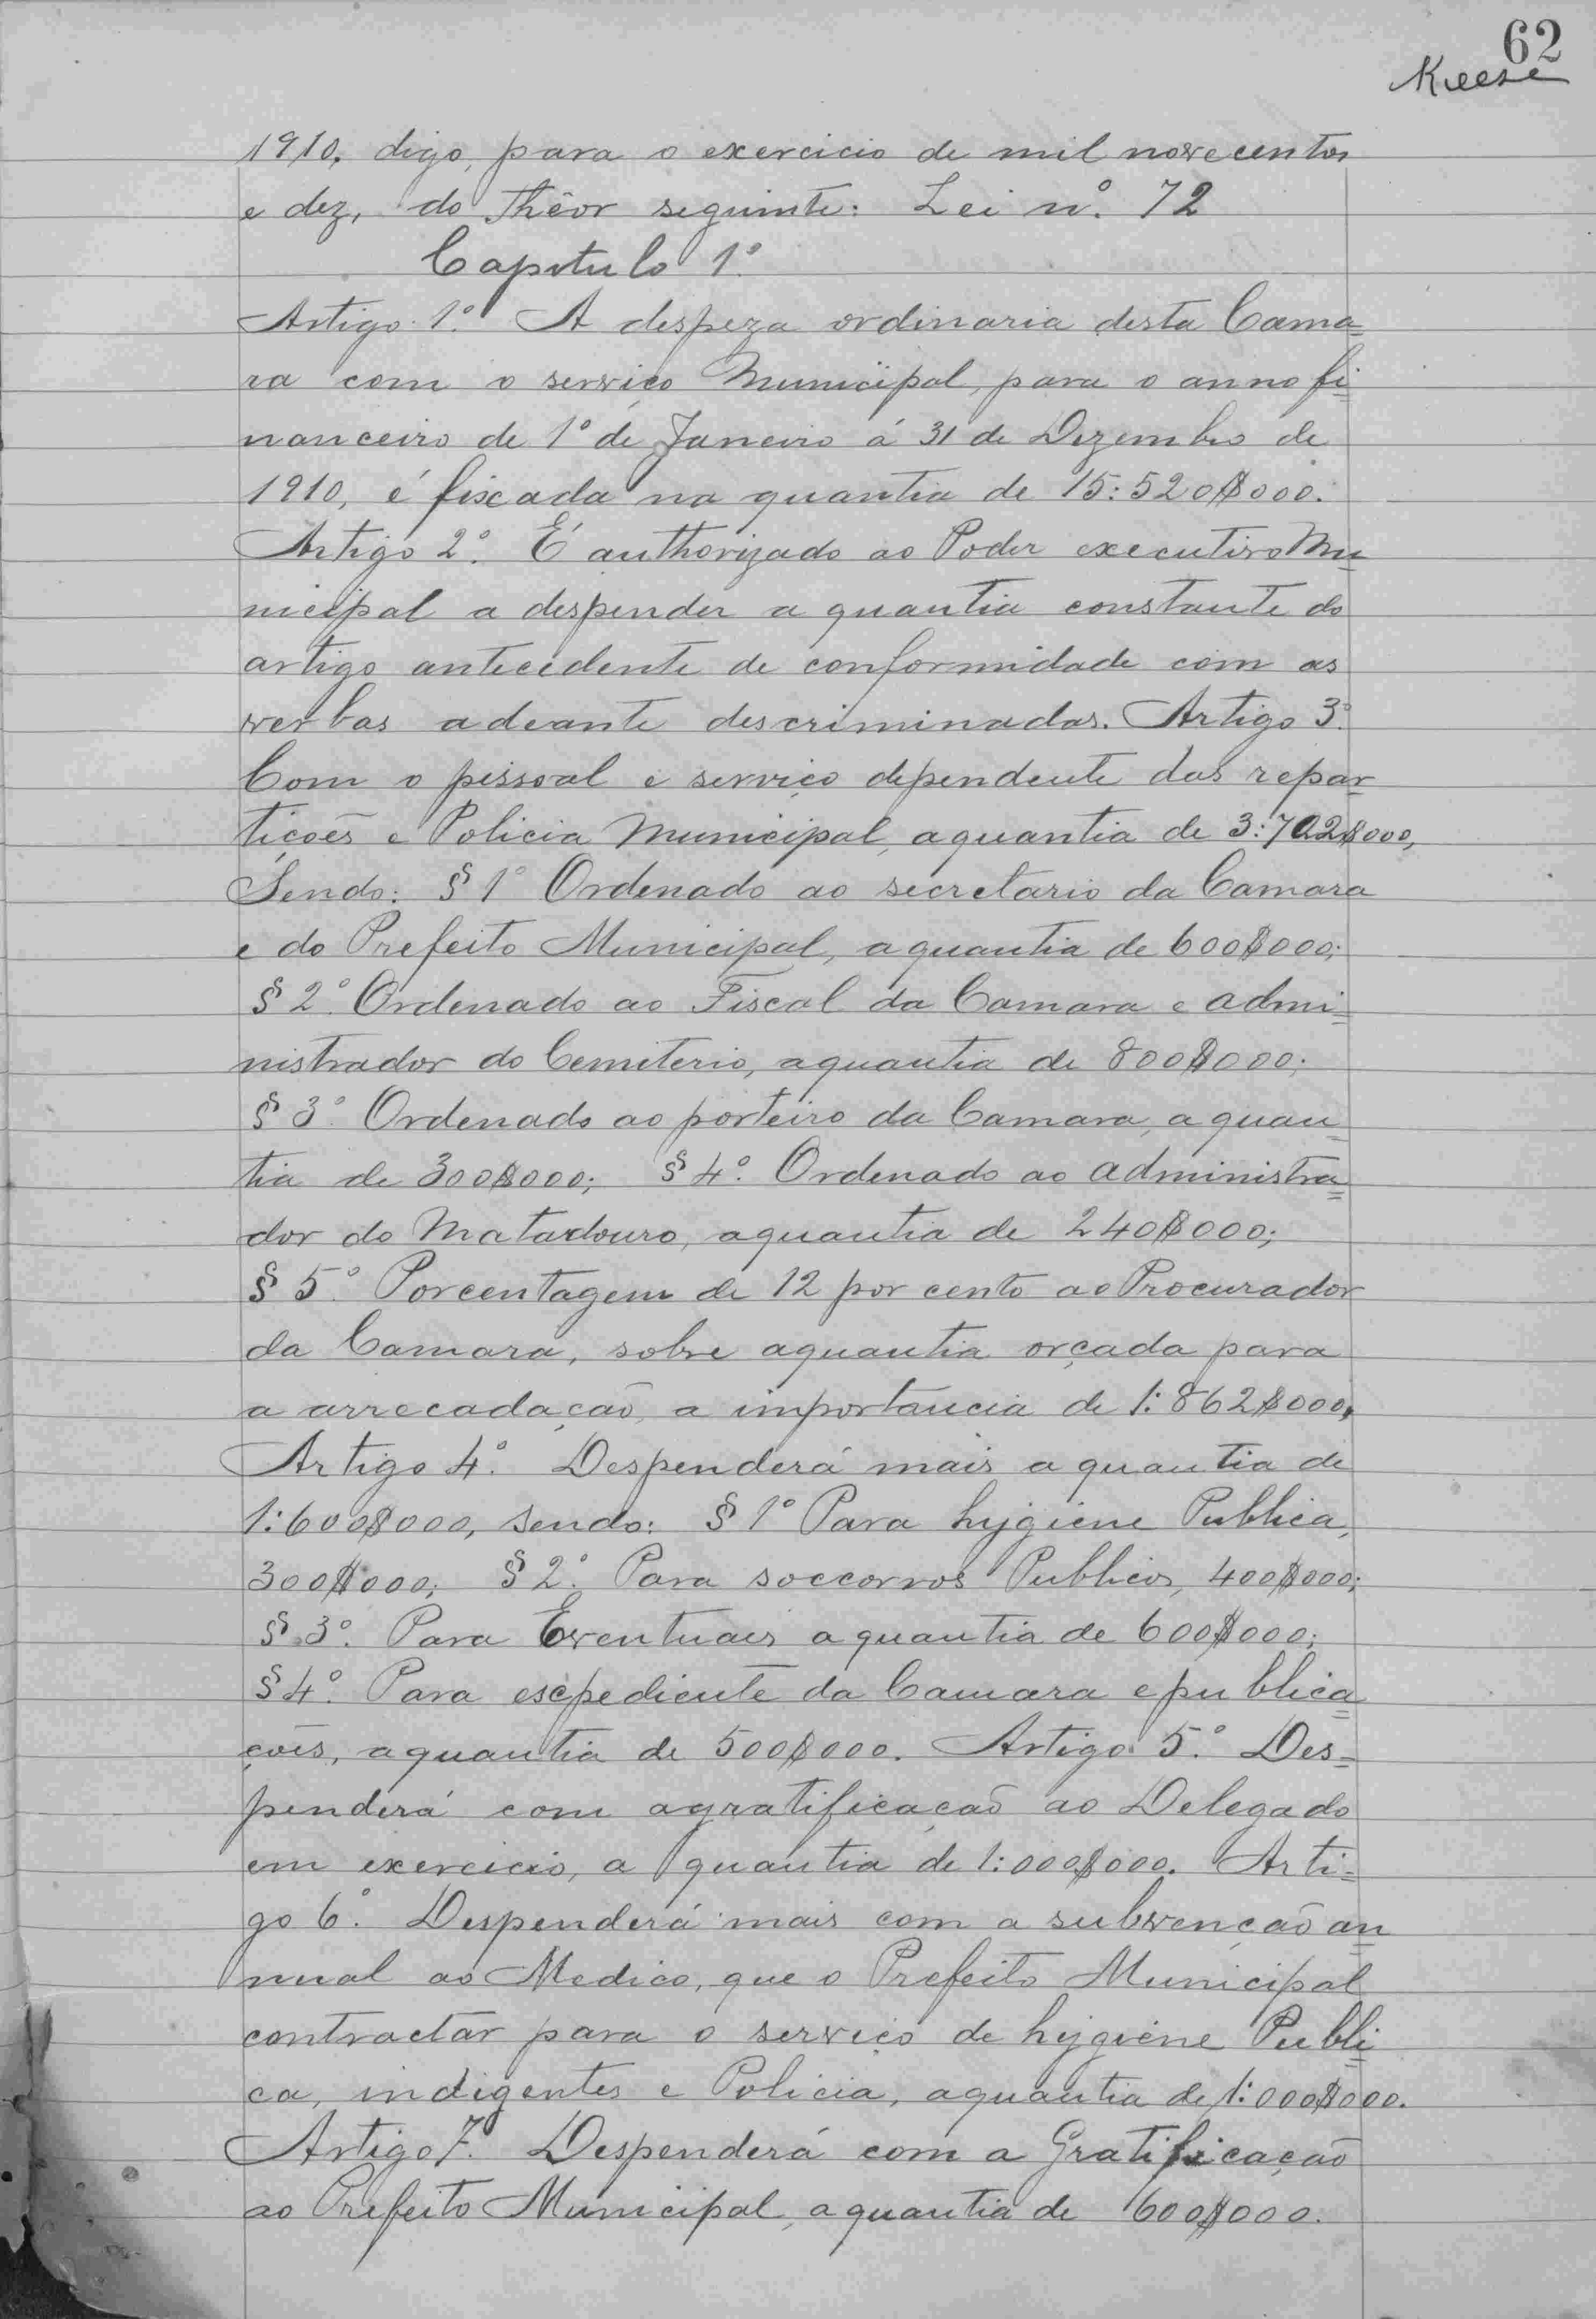 62
1910, digo, para o exercicio de mil novecentos
e dez, do Thêor seguinte: Lei nº. 72
Capitulo 1º.
Artigo 1º. A despeza ordinaria desta Cama=
ra com o serviço Municipal, para o anno fi=
nanceiro de 1º de Janeiro á 31 de Dezembro de
1910, é fixada na quantia de 15:520$000.
Artigo 2º. É authorizado ao Poder executivo Mu=
nicipal a despender a quantia constante do
artigo antecedente de conformidade com as
verbas adeante descriminadas. Artigo 3º.
Com o pessoal e serviço dependente das repar=
tições e Policia Municipal, a quantia de 3:702$000,
Sendo: § 1º Ordenado ao secretario da Camara
e do Prefeito Municipal, a quantia de 600$000;
§ 2º. Ordenado ao Fiscal da Camara e admi=
nistrador do Cemiterio, a quantia de 800$000;
§ 3º. Ordenado ao porteiro da Camara, a quan=
tia de 300$000; § 4º. Ordenado ao administra=
dor do Matadouro, a quantia de 240$000;
§ 5º. Porcentagem de 12 por cento ao Procurador
da Camara, sobre a quantia orçada para
a arrecadação, a importancia de 1:862$000.
Artigo 4º. Despenderá mais a quantia de
1:600$000, sendo: § 1º Para hygiene Publica,
300$000; § 2º. Para soccorros Publicos, 400$000;
§ 3º. Para Eventuaes a quantia de 600$000;
§ 4º. Para expediente da Camara e publica=
ções, a quantia de 500$000. Artigo 5º. Des=
penderá com a gratificação ao Delegado
em exercicio, a quantia de 1:000$000. Arti=
go 6º. Despenderá mais com a subvenção an=
nual ao Medico, que o Prefeito Municipal
contractar para o serviço de hygiene Publi=
ca, indigentes e Policia, a quantia de 1:000$000.
Artigo 7º. Despenderá com a Gratificação
ao Prefeito Municipal, a quantia de 600$000.